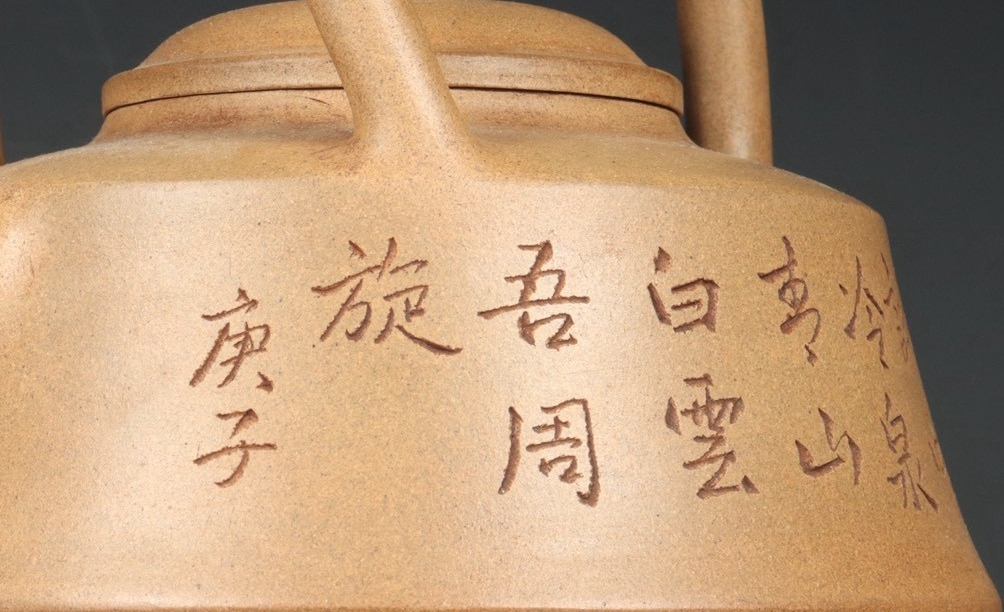 冷泉
青山
白雲
吾周
旋
庚子